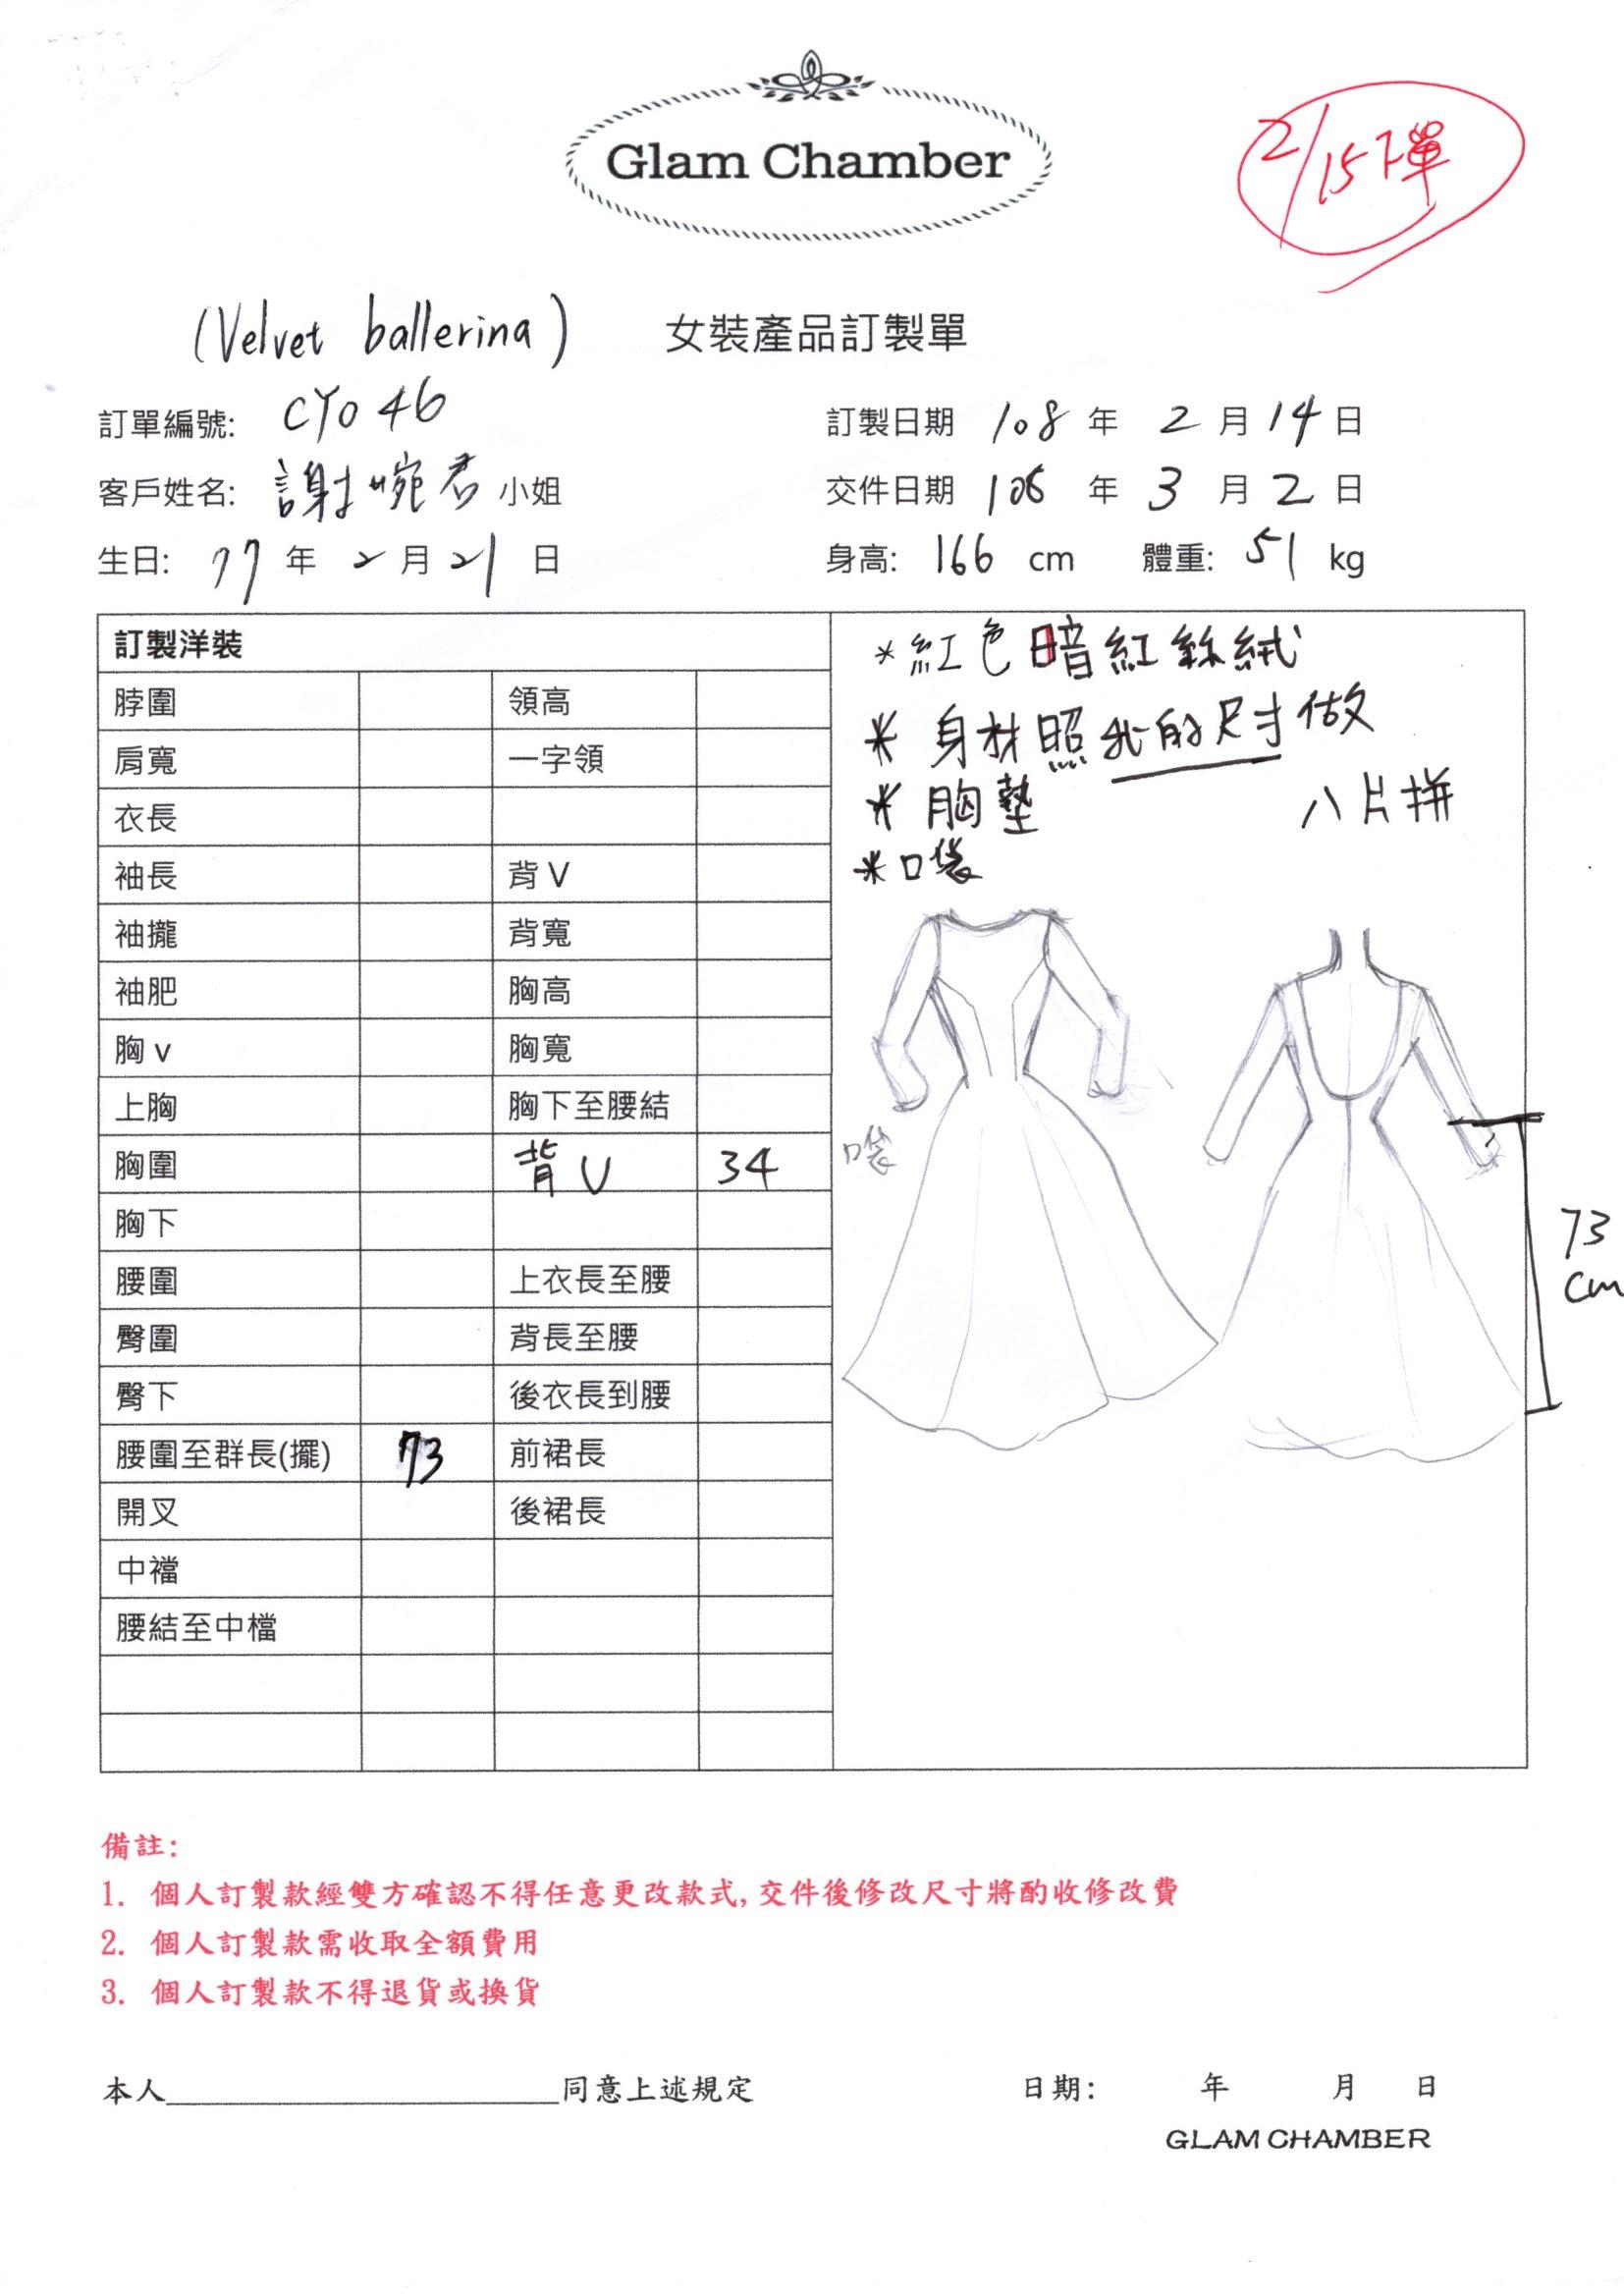 Glam Chamber
2/15下單
(Velvet ballerina) 女裝產品訂製單
訂單編號: CY046 訂製日期 108 年 2 月 14 日
客戶姓名: 謝婉君 小姐 交件日期 108 年 3 月 2 日
生日: 77 年 2 月 21 日 身高: 166 cm 體重: 51 kg
訂製洋裝
脖圍 領高
肩寬 一字領
衣長
袖長 背 V
袖攏 背寬
袖肥 胸高
胸 v 胸寬
上胸 胸下至腰結
胸圍 背 V 34
胸下
腰圍 上衣長至腰
臀圍 背長至腰
臀下 後衣長到腰
腰圍至群長(擺) 73 前裙長
開叉 後裙長
中襠
腰結至中檔
*紅色暗紅絲絨
* 身材照我的尺寸做
* 胸墊 八片拼
*口袋
口袋
73
cm
備註:
1. 個人訂製款經雙方確認不得任意更改款式,交件後修改尺寸將酌收修改費
2. 個人訂製款需收取全額費用
3. 個人訂製款不得退貨或換貨
本人____________同意上述規定 日期: 年 月 日
GLAM CHAMBER